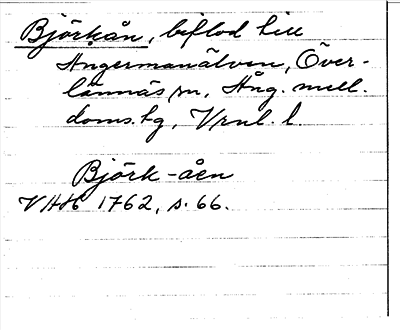 Björkån, biflod till
Ångermanälven, Över-
lännäs sn, Ång. mell.
doms.tg, Vrnl. l.
Björk-åen
VHH 1762, s. 66.